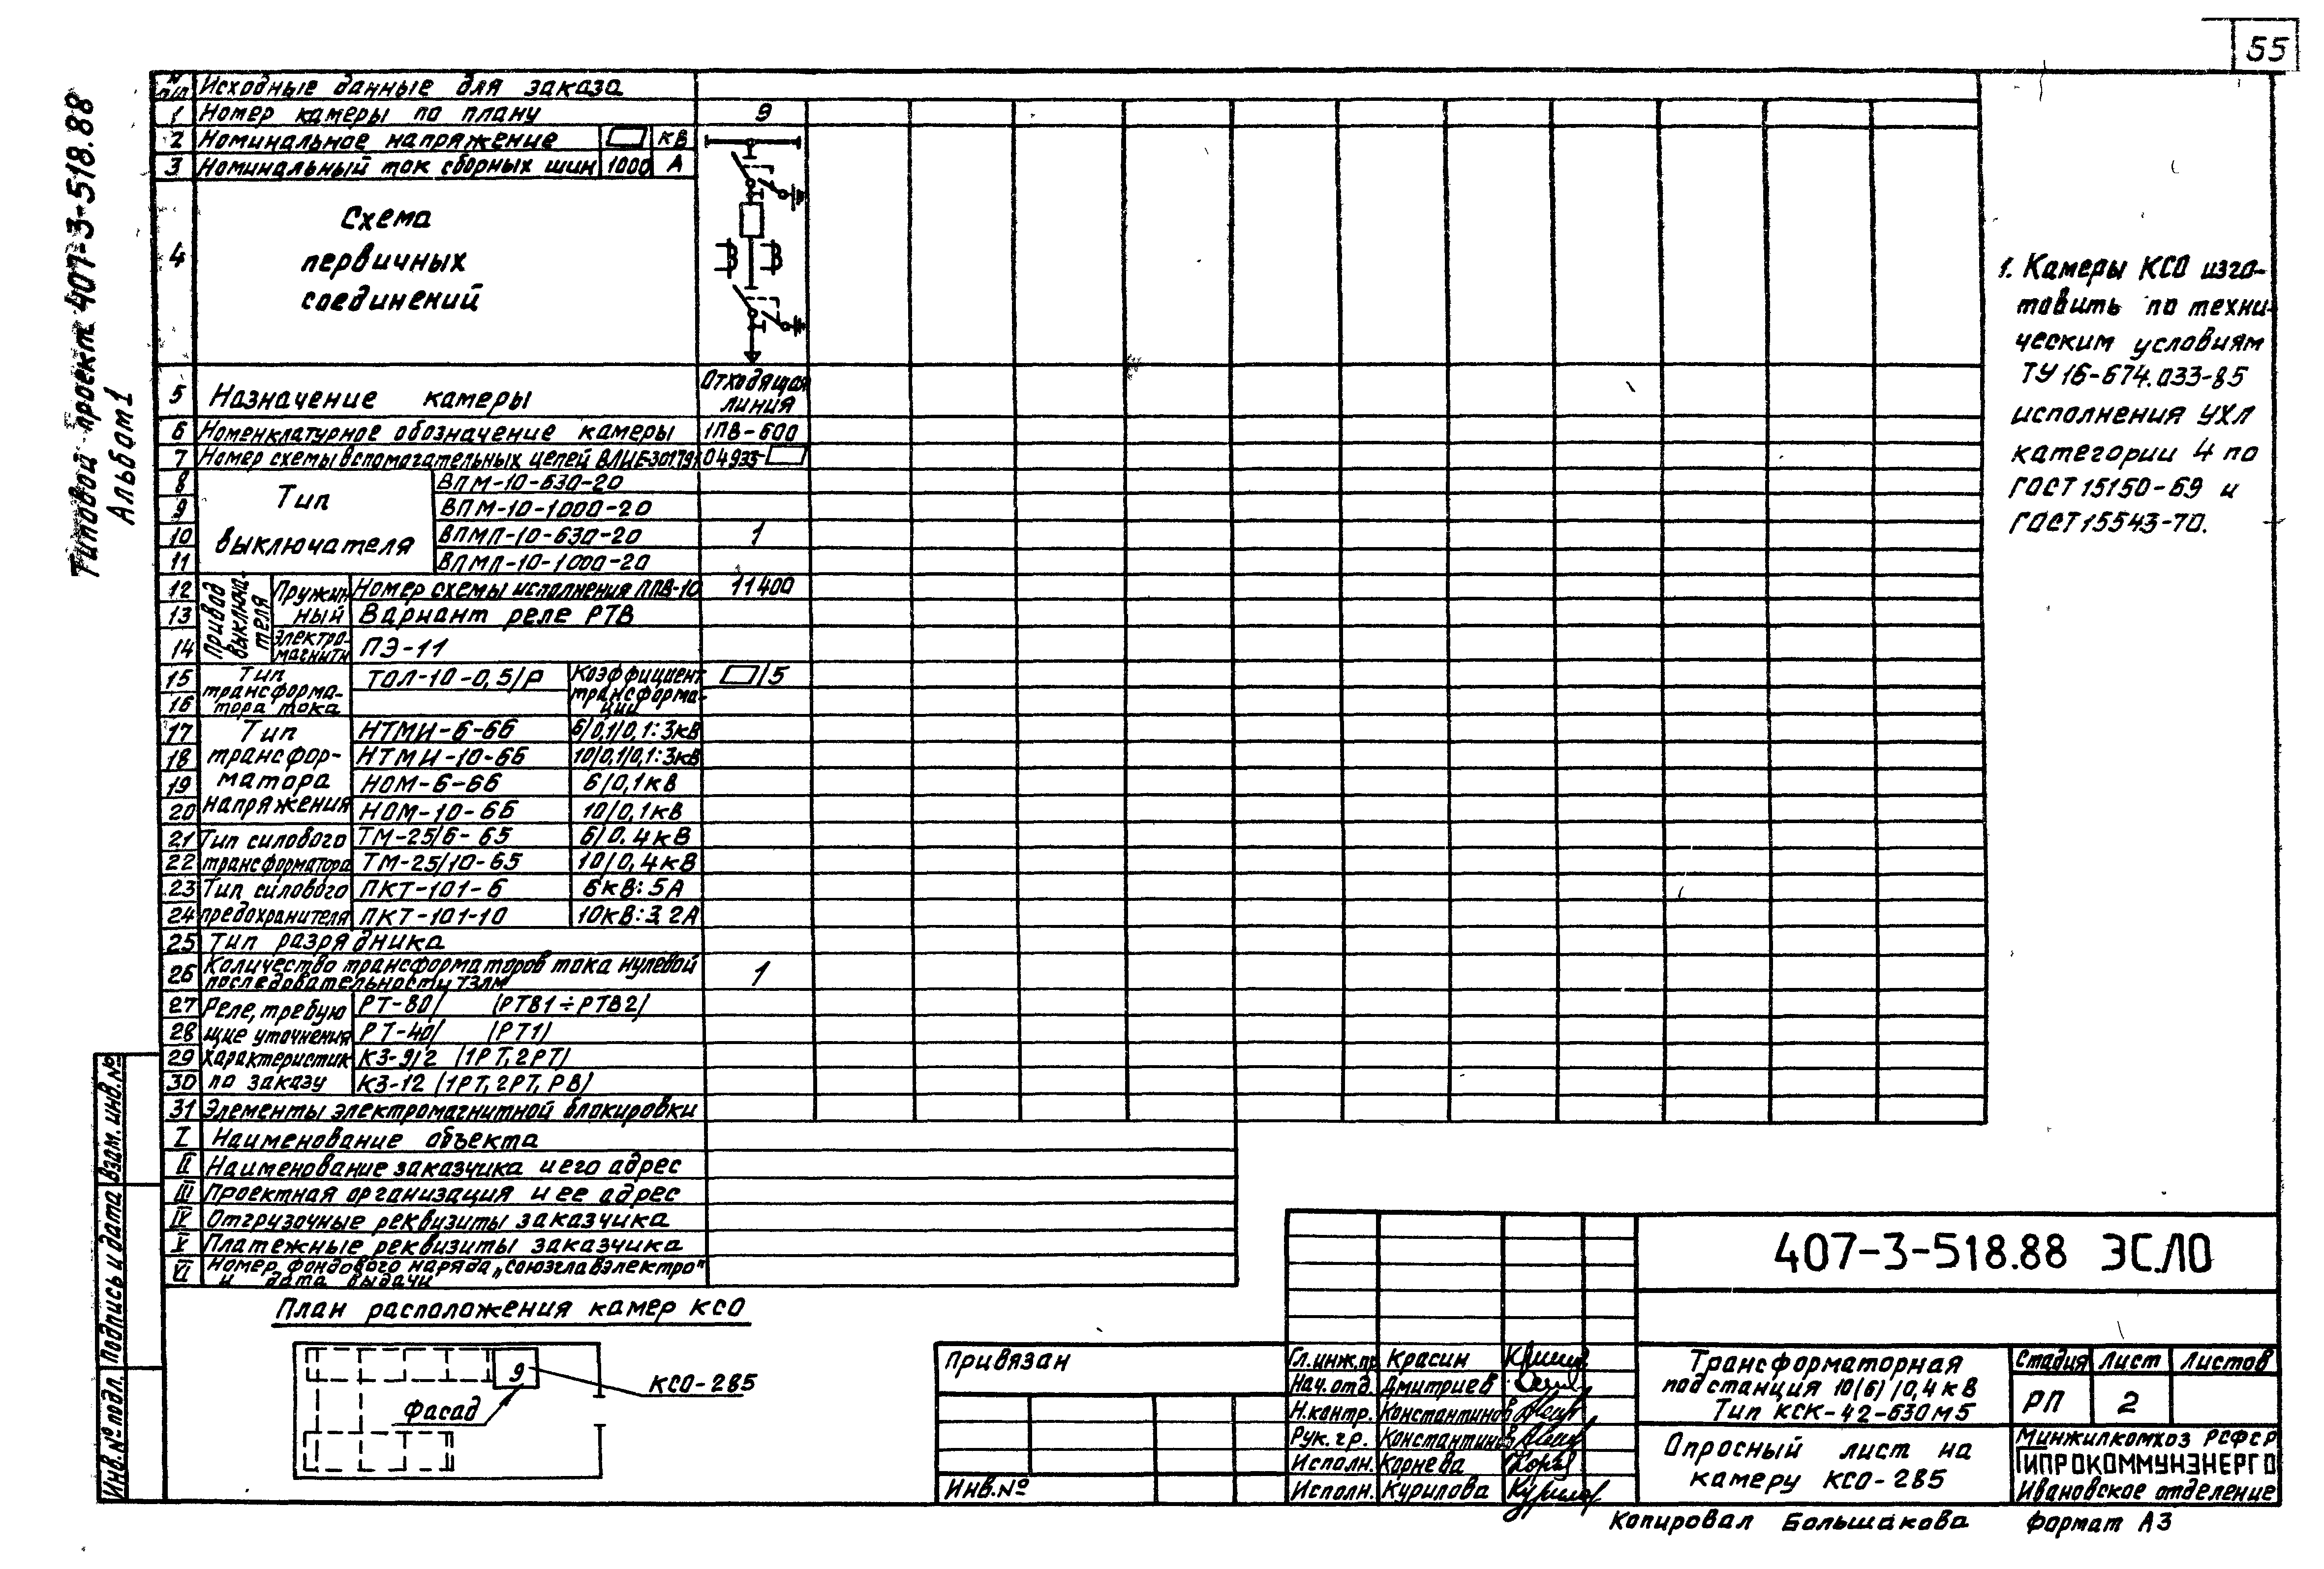 55
Типовой проект 407-3-518.88
Альбом 1
N п/п Исходные данные для заказа
1 Номер камеры по плану 9
2 Номинальное напряжение кВ
3 Номинальный ток сборных шин 1000 А
4 Схема первичных соединений
5 Назначение камеры Отходящая линия
6 Номенклатурное обозначение камеры 1ПВ-600
7 Номер схемы вспомогательных цепей 04935-
Тип выключателя
8 ВПМ-10-630-20
9 ВПМ-10-1000-20
10 ВПМП-10-630-20 1
11 ВПМП-10-1000-20
Привод выключателя
12 Пружинный Номер схемы исполнения ППВ-10 11400
13 Вариант реле РТВ
14 Электромагнитн ПЭ-11
15 Тип трансформатора тока ТОЛ-10-0,5/Р Коэффициент трансформации /5
16
17 Тип трансформатора напряжения НТМИ-6-66 6/0,1/0,1:3кВ
18 НТМИ-10-66 10/0,1/0,1:3кВ
19 НОМ-6-66 6/0,1кВ
20 НОМ-10-66 10/0,1кВ
21 Тип силового трансформатора ТМ-25/6-65 6/0.4кВ
22 ТМ-25/10-65 10/0,4кВ
23 Тип силового предохранителя ПКТ-101-6 6кВ:5А
24 ПКТ-101-10 10кВ:3.2А
25 Тип разрядника
26 Количество трансформаторов тока нулевой последовательности ТЗЛМ 1
27 Реле, требующие уточнения характеристик по заказу РТ-80/ (РТВ1÷РТВ2)
28 РТ-40/ (РТ1)
29 КЗ-9/2 (1РТ, 2РТ)
30 КЗ-12 (1РТ, 2РТ, РВ)
31 Элементы электромагнитной блокировки
I Наименование объекта
II Наименование заказчика и его адрес
III Проектная организация и ее адрес
IV Отгрузочные реквизиты заказчика
V Платежные реквизиты заказчика
VI Номер фондового наряда „Союзглавэлектро" и дата выдачи
1. Камеры КСО изго-
товить по техни-
ческим условиям
ТУ 16-674.033-85
исполнения УХЛ
категории 4 по
ГОСТ 15150-69 и
ГОСТ 15543-70.
План расположения камер КСО
9
КСО-285
Фасад
Инв. № подл. Подпись и дата Взам. инв. №
Привязан
Инв. №
407-3-518.88 ЭС.ЛО
Гл. инж. пр. Красин
Нач. отд. Дмитриев
Н. контр. Константинов
Рук. гр. Константинов
Исполн. Корнева
Исполн. Курилова
Трансформаторная
подстанция 10(6)/0,4 кВ
Тип КСК-42-630М5
Стадия Лист Листов
РП 2
Опросный лист на
камеру КСО-285
Минжилкомхоз РСФСР
ГИПРОКОММУНЭНЕРГО
Ивановское отделение
Копировал Большакова Формат А3